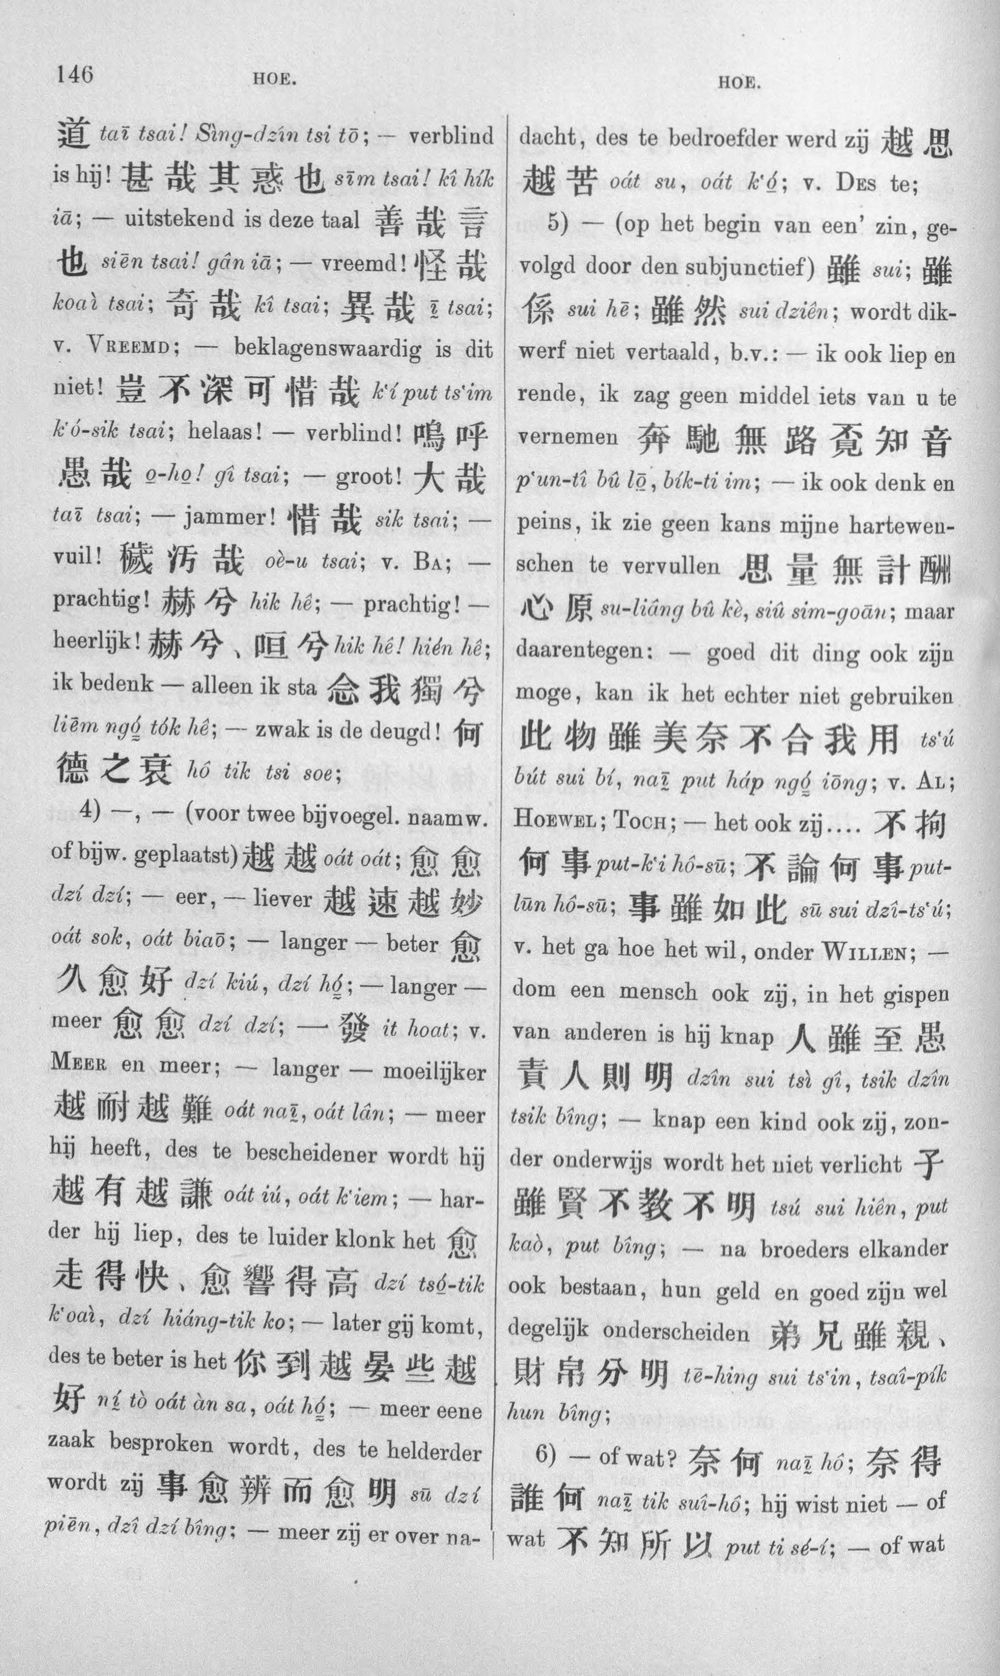 146
HOE.
HOE.
道 taī tsai! Sìng-dzîn tsi tō; — verblind
is hij! 甚哉其惑也 sīm tsai! kî hík
iā; — uitstekend is deze taal 善哉言
也 siēn tsai! gân iā; — vreemd! 怪哉
koaì tsai; 奇哉 kî tsai; 異哉 ī tsai;
v. VREEMD; — beklagenswaardig is dit
niet! 豈不深可惜哉 k‘í put ts‘im
k‘ó-sik tsai; helaas! — verblind! 嗚呼
愚哉 o̱-ho̱! gî tsai; — groot! 大哉
taī tsai; — jammer! 惜哉 sik tsai; —
vuil! 穢汚哉 oè-u tsai; v. BA; —
prachtig! 赫兮 hik hê; — prachtig! —
heerlijk! 赫兮、咺兮 hik hê! hién hê;
ik bedenk — alleen ik sta 念我獨兮
liēm ngó̱ tók hê; — zwak is de deugd! 何
德之衰 hô tik tsi soe;
4) —, — (voor twee bijvoegel. naamw.
of bijw. geplaatst) 越越 oát oát; 愈愈
dzí dzí; — eer, — liever 越速越妙
oát sok, oát biaō; — langer — beter 愈
久愈好 dzí kiú, dzí hó̱; — langer —
meer 愈愈 dzí dzí; 一發 it hoat; v.
MEER en meer; — langer — moeilijker
越耐越難 oát naī, oát lân; — meer
hij heeft, des te bescheidener wordt hij
越有越謙 oát iú, oát k‘iem; — har-
der hij liep, des te luider klonk het 愈
走得快、愈響得高 dzí tsó̱-tik
k‘oaì, dzí hiáng-tik ko; — later gij komt,
des te beter is het 你到越晏些越
好 ní tò oát àn sa, oát hó̱; — meer eene
zaak besproken wordt, des te helderder
wordt zij 事愈辨而愈明 sū dzí
piēn, dzî dzí bîng; — meer zij er over na-
dacht, des te bedroefder werd zij 越思
越苦 oát su, oát k‘ó̱; v. DES te;
5) — (op het begin van een’ zin, ge-
volgd door den subjunctief) 雖 sui; 雖
係 sui hē; 雖然 sui dziên; wordt dik-
werf niet vertaald, b.v.: — ik ook liep en
rende, ik zag geen middel iets van u te
vernemen 奔馳無路覓知音
p‘un-tî bû lō̱, bík-ti im; — ik ook denk en
peins, ik zie geen kans mijne hartewen-
schen te vervullen 思量無計酬
心原 su-liâng bû kè, siû sim-goān; maar
daarentegen: — goed dit ding ook zijn
moge, kan ik het echter niet gebruiken
此物雖美奈不合我用 ts‘ú
bút sui bí, naī put háp ngó̱ iōng; v. AL;
HOEWEL; TOCH; — het ook zij.... 不拘
何事 put-k‘i hô-sū; 不論何事 put-
lūn hô-sū; 事雖如此 sū sui dzî-ts‘ú;
v. het ga hoe het wil, onder WILLEN; —
dom een mensch ook zij, in het gispen
van anderen is hij knap 人雖至愚
責人則明 dzîn sui tsì gî, tsik dzîn
tsik bîng; — knap een kind ook zij, zon-
der onderwijs wordt het niet verlicht 子
雖賢不教不明 tsú sui hiên, put
kaò, put bîng; — na broeders elkander
ook bestaan, hun geld en goed zijn wel
degelijk onderscheiden 弟兄雖親、
財帛分明 tē-hing sui ts‘in, tsaî-pík
hun bîng;
6) — of wat? 奈何 naī hô; 奈得
誰何 naī tik suî-hô; hij wist niet — of
wat 不知所以 put ti sé-í; — of wat